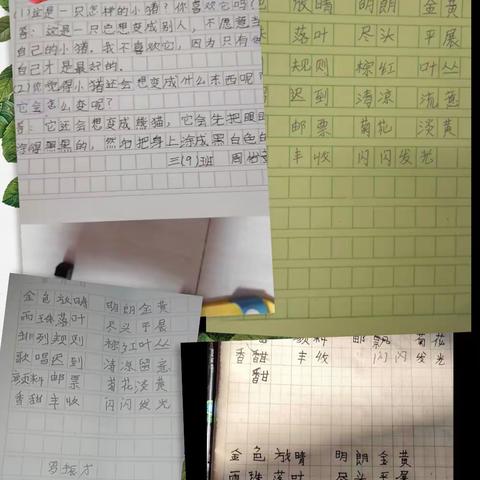 (1)这是一只怎样的小猪?你喜欢它吗?
答:这是一只总想变成别人,不愿意当
自己的小猪。我不喜欢它,因为只有做
自己才是最好的。
(2)你觉得小猪还会想变成什么东西呢?
它会怎么变呢?
答:它还会想变成熊猫,它会先把眼
黑的,然后把身上涂成黑白色
三(9)班 周
放晴 明朗 金黄
落叶 尽头 平展
规则 棕红 叶丛
迟到 清凉
邮票 菊花 淡黄
丰收 闪闪发光
金色 放晴 明朗 金黄
雨珠 落叶 尽头 平展
排列 规则 棕红 叶丛
歌唱 迟到 清凉 留意
颜料 邮票 菊花 淡黄
香甜 丰收 闪闪发光
罗振才
颜料 邮飘 菊花
香甜 丰收 闪闪发光
甜
金色 放晴 明朗 金黄
雨珠 落叶 尽头 平展